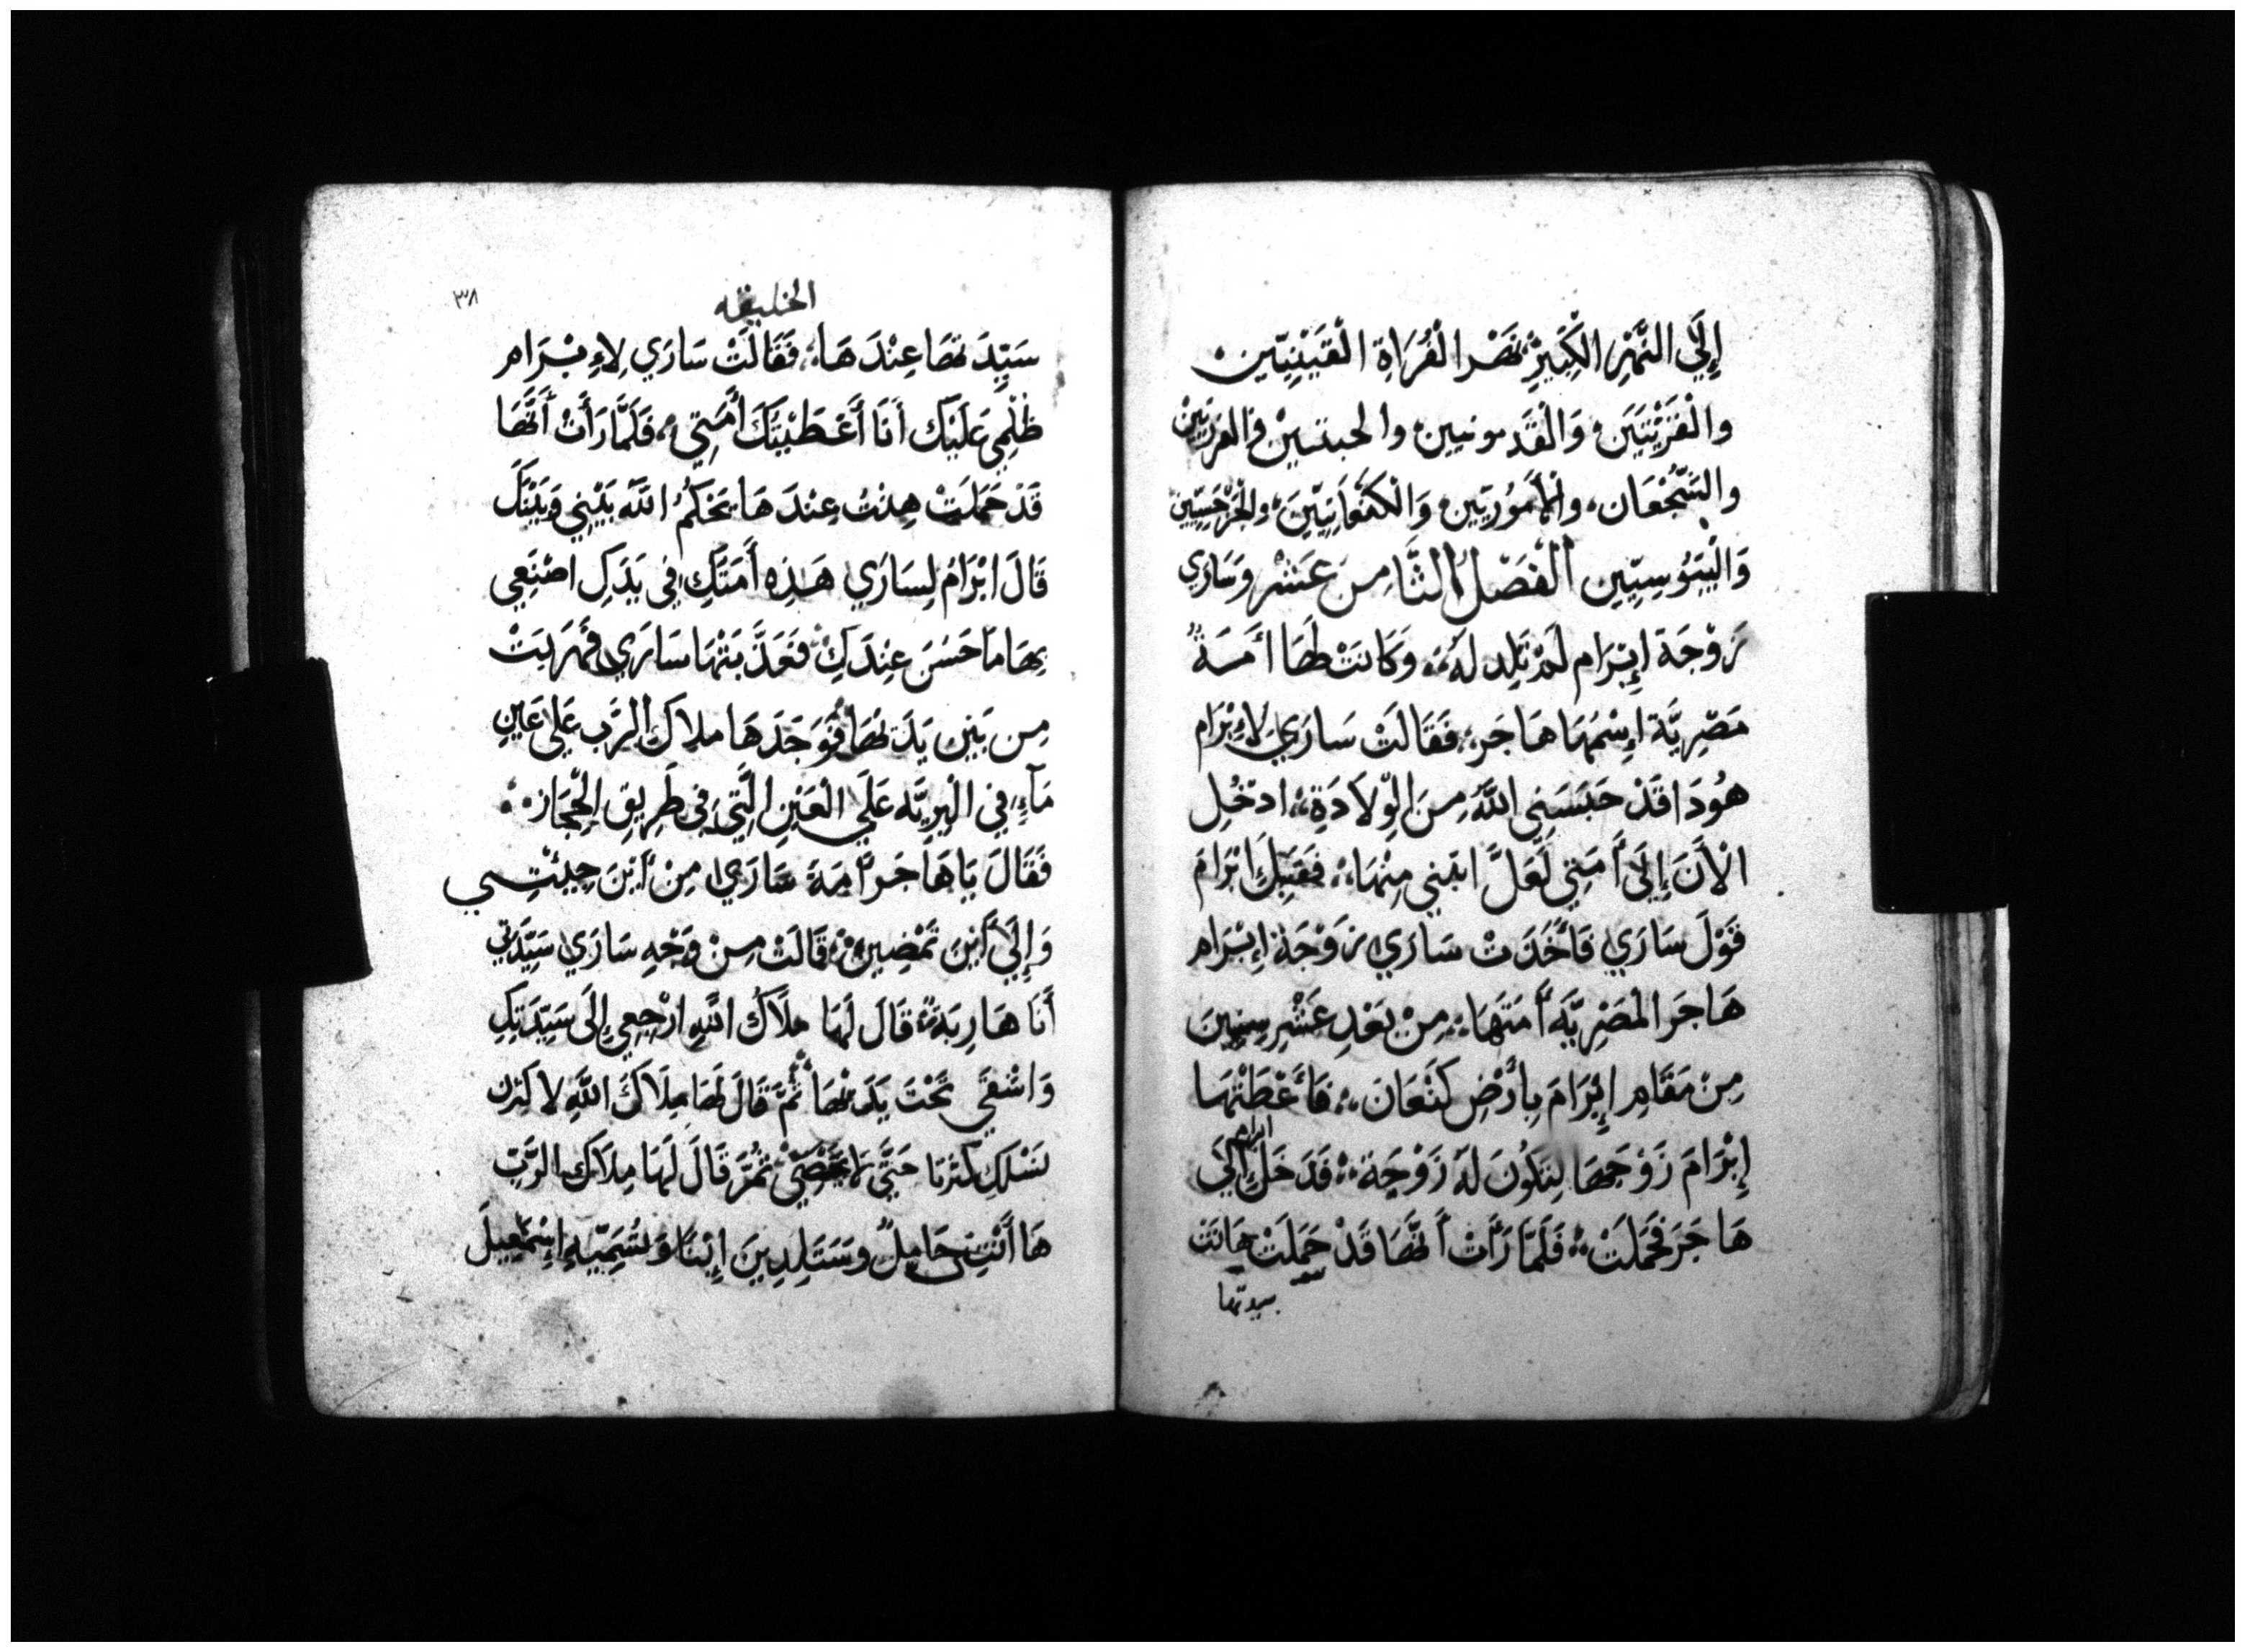 إِلَي النَّهْرِ الْكَبِيرِ نَهْرِ الْفُرَاةِ الْقَيْنِيِّينَ
والْقَزِّيِّينَ وَالْقَدمونيين والحيتيين والفرزيين
والشُّجْعَان، والْأَمُورِيِّين وَالْكَنْعَانِيِّينَ، والْجَرْجَسِيِّين
وَالْيَبُوسِيِّين الْفَصْلُ الثَّامِن عَشَر وَسَارَي
زَوْجَة إِبْرَام لَمْ تَلِد لَهُ، وَكَانَتْ لَهَا أَمَةٌ
مَصْرِيَّة إِسْمُهَا هَاجَر، فَقَالَتْ سَارَي لِإِبْرَام
هُوَذَا قَدْ حَبَسَنِي اللَّهُ مِنَ الْوِلَادَةِ، ادْخُل
الْأَنَ إِلَي أَمَتِي لَعَلَّ ابْتَنِي مِنْهَا، فَقَبِلَ ابْرَام
قَوْلَ سَارَي فَأَخَذَتْ سَارَي زَوْجَة إِبْرَام
هَاجَر الْمَصْرِيَّه أَمَتَهَا، مِنْ بَعْدِ عَشْرِ سِنِينَ
مِنْ مَقَامِ إِبْرَام بِأَرْضِ كَنْعَان، فَأَعْطَتْهَا
إِبْرَامَ زَوْجَهَا لِتَكُونَ لَهُ زَوْجَة، فَدَخَلَ ابرام إِلَي
هَاجَرَ فَحَمَلَتْ، فَلَمَّا رَأَتْ أَنَّهَا قَدْ حَمِلَتْ هَانَت
سيدتها
الخليقه
٣٨
سَيِّدَتهَا عِنْدَهَا، فَقَالَتْ سَارَي لِإِبْرَام
ظُلْمِي عَلَيْك أَنَا أَعْطَيْتُكَ أَمَتِي، فَلَمَّا رَأَتْ أَنَّهَا
قَدْ حَمَلَتْ هِنْتُ عِنْدَهَا يَحْكُمُ اللَّه بَيْنِي وَبَيْنَكَ
قَالَ ابْرَامُ لِسَارَي هَذِه أَمَتُكِ فِي يَدَكِ اصْنَعِي
بِهَا مَا حَسُنَ عِنْدَكِ فَعَذَّبَتْهَا سَارَي فَهَرَبَتْ
مِن بَيْنِ يَدَيْهَا فَوَجَدَهَا ملاكُ الرَّب عَلَي عَيْنِ
مَآءٍ فِي الْبِرِيَّه عَلَي الْعَيْنِ الَّتِي فِي طَرِيقِ الْحِجَاز
فَقَالَ يَا هَاجَر أَمَةَ سَارَي مِنْ أَيْنَ جِيئْتِي
وَإِلَي أَيْنَ تَمْضِينَ، قَالَتْ مِنْ وَجْهِ سَارَي سَيِّدَتِي
أَنَا هَارِبَةٌ، قَالَ لَهَا مَلَاكُ اللَّهِ ارْجِعِي إِلَى سَيِّدَتِكِ
وَاشْقَي تَحْتَ يَدَيْهَا ثُمَّ قَالَ لَهَا مِلَاكَ اللَّهِ لاكثرن
نَسْلَكِ كثرتا حَتَّي لا يُحْصَي ثُمَّ قَالَ لَهَا مِلَاكَ الرَّبّ
هَا أَنْتِي حَامِلٌ وسَتَلِدِينَ إِبْنًا وَتُسَمِّيهِ إِسْمَعِيلَ